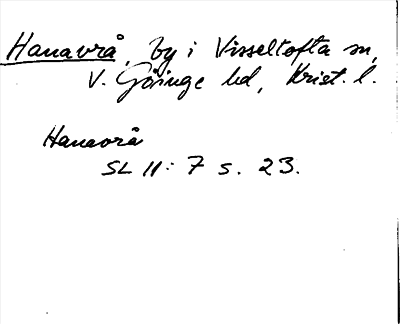 Hanavrå, by i Visseltofta sn,
V. Göinge hd, Krist. l.
Hanavrå
SL 11:7 s. 23.